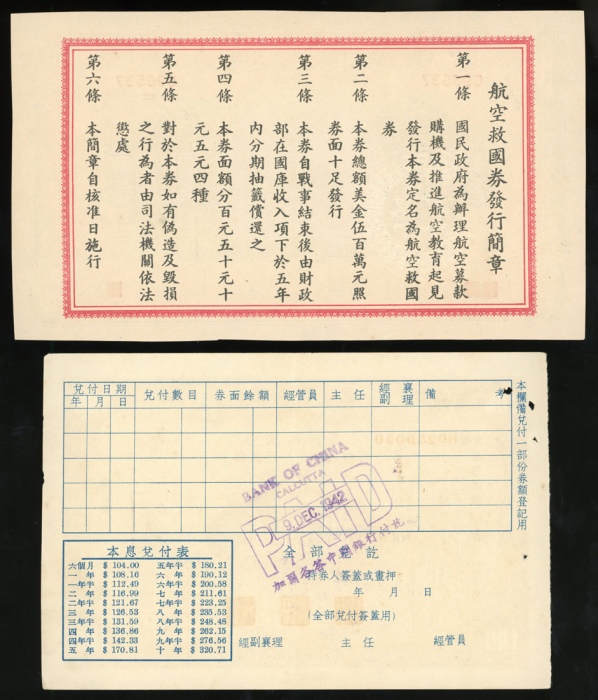 航空救國券發行簡章
第一條 國民政府為辦理航空募款
購機及推進航空教育起見
發行本券定名為航空救國
券
第二條 本券總額美金伍百萬元照
券面十足發行
第三條 本券自戰事結束後由財政
部在國庫收入項下於五年
內分期抽籤償還之
第四條 本券面額分百元五十元十
元五元四種
第五條 對於本券如有偽造及毀損
之行為者由司法機關依法
懲處
第六條 本簡章自核准日施行
兌付日期 兌付數目 券面餘額 經管員 主任 經副襄理 備考
年 月 日
本欄備兌付一部份券額登記用
BANK OF CHINA
CALCUTTA
PAID
9. DEC. 1942
中國銀行付訖
本息兌付表
六個月 $ 104.00 五年半 $ 180.21
一年 $ 108.16 六年 $ 190.12
一年半 $ 112.49 六年半 $ 200.58
二年 $ 116.99 七年 $ 211.61
二年半 $ 121.67 七年半 $ 223.25
三年 $ 126.53 八年 $ 235.53
三年半 $ 131.59 八年半 $ 248.48
四年 $ 136.86 九年 $ 262.15
四年半 $ 142.33 九年半 $ 276.56
五年 $ 170.81 十年 $ 320.71
全部兌訖
持券人簽蓋或畫押
年 月 日
(全部兌付簽蓋用)
經副襄理 主任 經管員